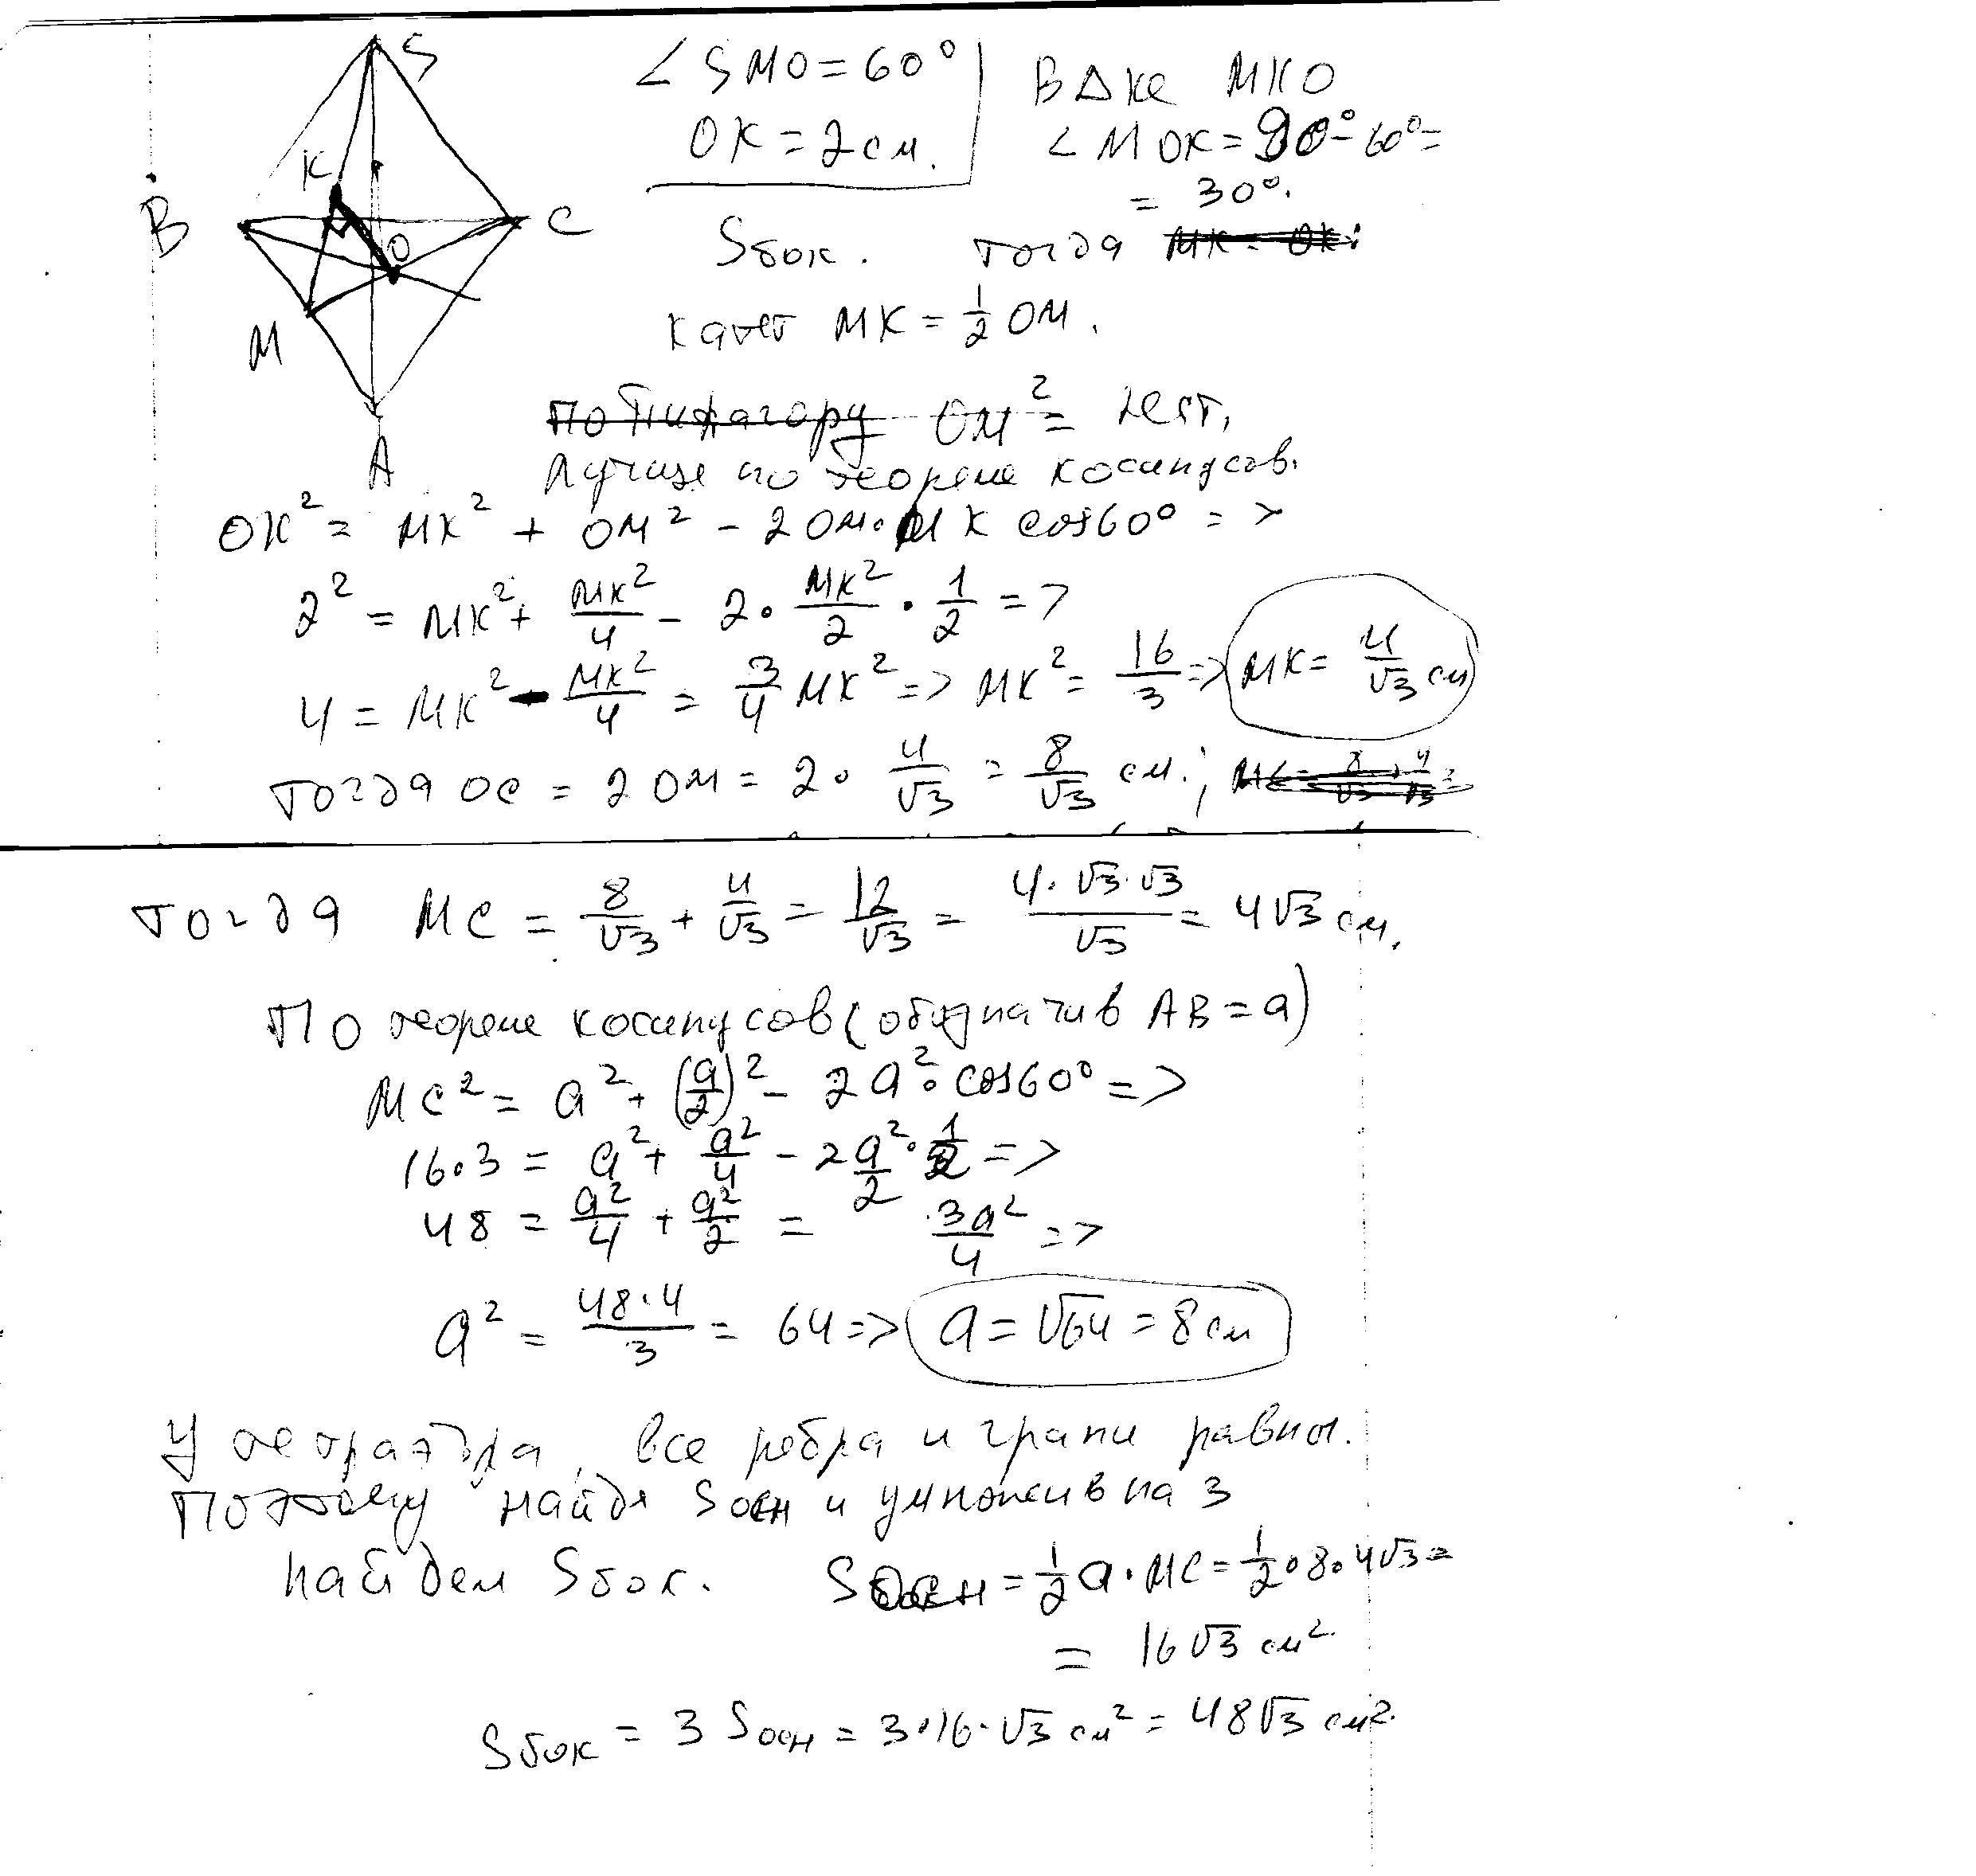 S
K
B
C
O
M
A
∠ SMO = 60°
OK = 2 см.
В Δке MKO
∠ MOK = 90° - 60° =
= 30°.
Sбок. тогда MK = OK
катет MK = 1/2 OM.
по Пифагору OM² =
Лучше по теореме косинусов.
OK² = MK² + OM² - 2 OM · MK cos 60° =>
2² = MK² + MK²/4 - 2 · MK²/2 · 1/2 =>
4 = MK² - MK²/4 = 3/4 MK² => MK² = 16/3 => MK = 4/√3 см
тогда OC = 2 OM = 2 · 4/√3 = 8/√3 см. ; MC = 8/√3 + 4/√3 =
тогда MC = 8/√3 + 4/√3 = 12/√3 = 4·√3·√3/√3 = 4√3 см.
По теореме косинусов (обозначив AB = a)
MC² = a² + (a/2)² - 2a² · cos 60° =>
16·3 = a² + a²/4 - 2 a²/2 · 1/2 =>
48 = a²/4 + a²/2 = 3a²/4 =>
a² = 48·4/3 = 64 => a = √64 = 8 см
У тетраэдра все ребра и грани равны.
Поэтому найдя Sосн и умножив на 3
найдем Sбок. Sосн = 1/2 a · MC = 1/2 · 8 · 4√3 =
= 16√3 см².
Sбок = 3 Sосн = 3·16·√3 см² = 48√3 см².